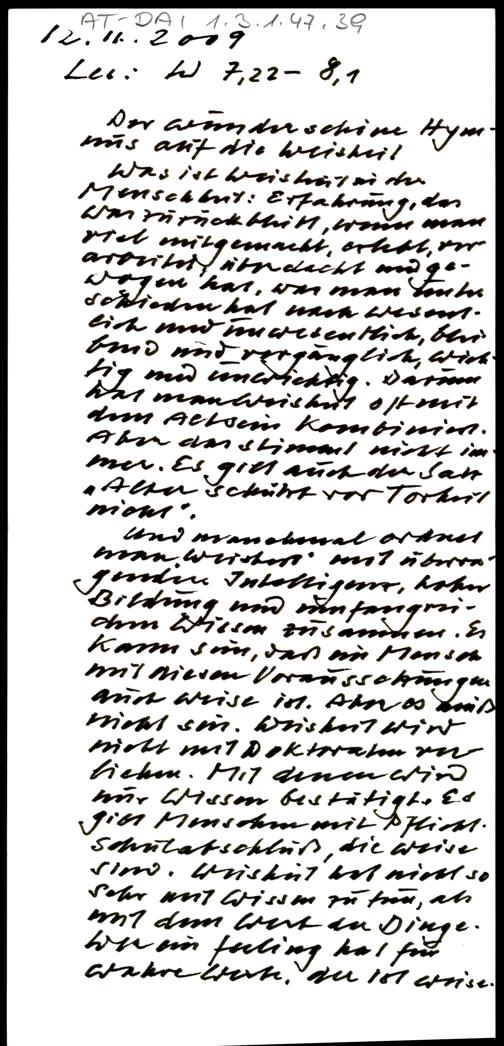 AT-DAI 1.3.1.47.39
12.11.2009
Les: W 7,22 - 8,1
Der wunderschöne Hym-
nus auf die Weisheit
Was ist Weisheit in der
Menschheit: Erfahrung, das
was zurückbleibt, wenn man
viel mitgemacht, erlebt, ver
arbeitet, überdacht und ge-
wogen hat, was man unter
schieden hat nach wesent-
lich und unwesentlich, blei
bend und vergänglich, wich-
tig und unwichtig. Darum
hat man Weisheit oft mit
dem Altsein kombiniert.
Aber das stimmt nicht im-
mer. Es gilt auch der Satz
"Alter schützt vor Torheit
nicht".
Und manchmal ordnet
man "Weisheit" mit überra-
gender Intelligenz, hoher
Bildung und umfangrei-
chem Wissen zusammen. Es
kann sein, daß ein Mensch
mit diesen Voraussetzungen
auch weise ist. Aber es muß
nicht sein. Weisheit wird
nicht mit Doktoraten ver
liehen. Mit denen wird
nur Wissen bestätigt. Es
gibt Menschen mit Pflicht-
schulabschluß, die weise
sind. Weisheit hat nicht so
sehr mit Wissen zu tun, als
mit dem Wert der Dinge.
Wer ein feeling hat für
wahre Werte, der ist weise.